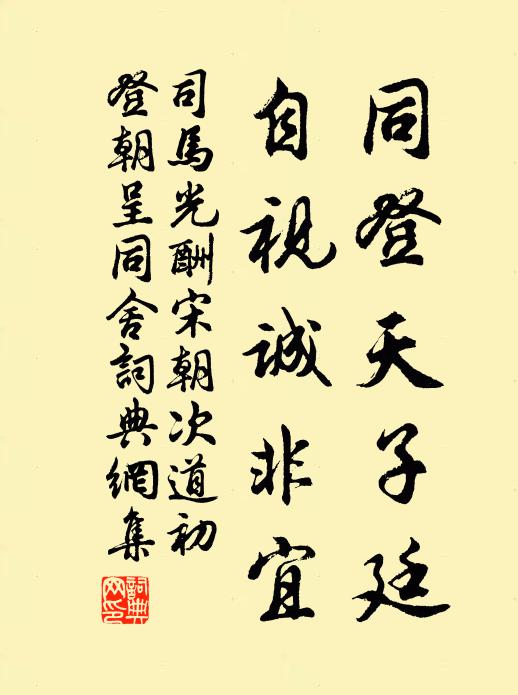 同登天子廷
自視誠非宜
司馬光酬宋朝次道初
登朝呈同舍詞典網集
詞典網印